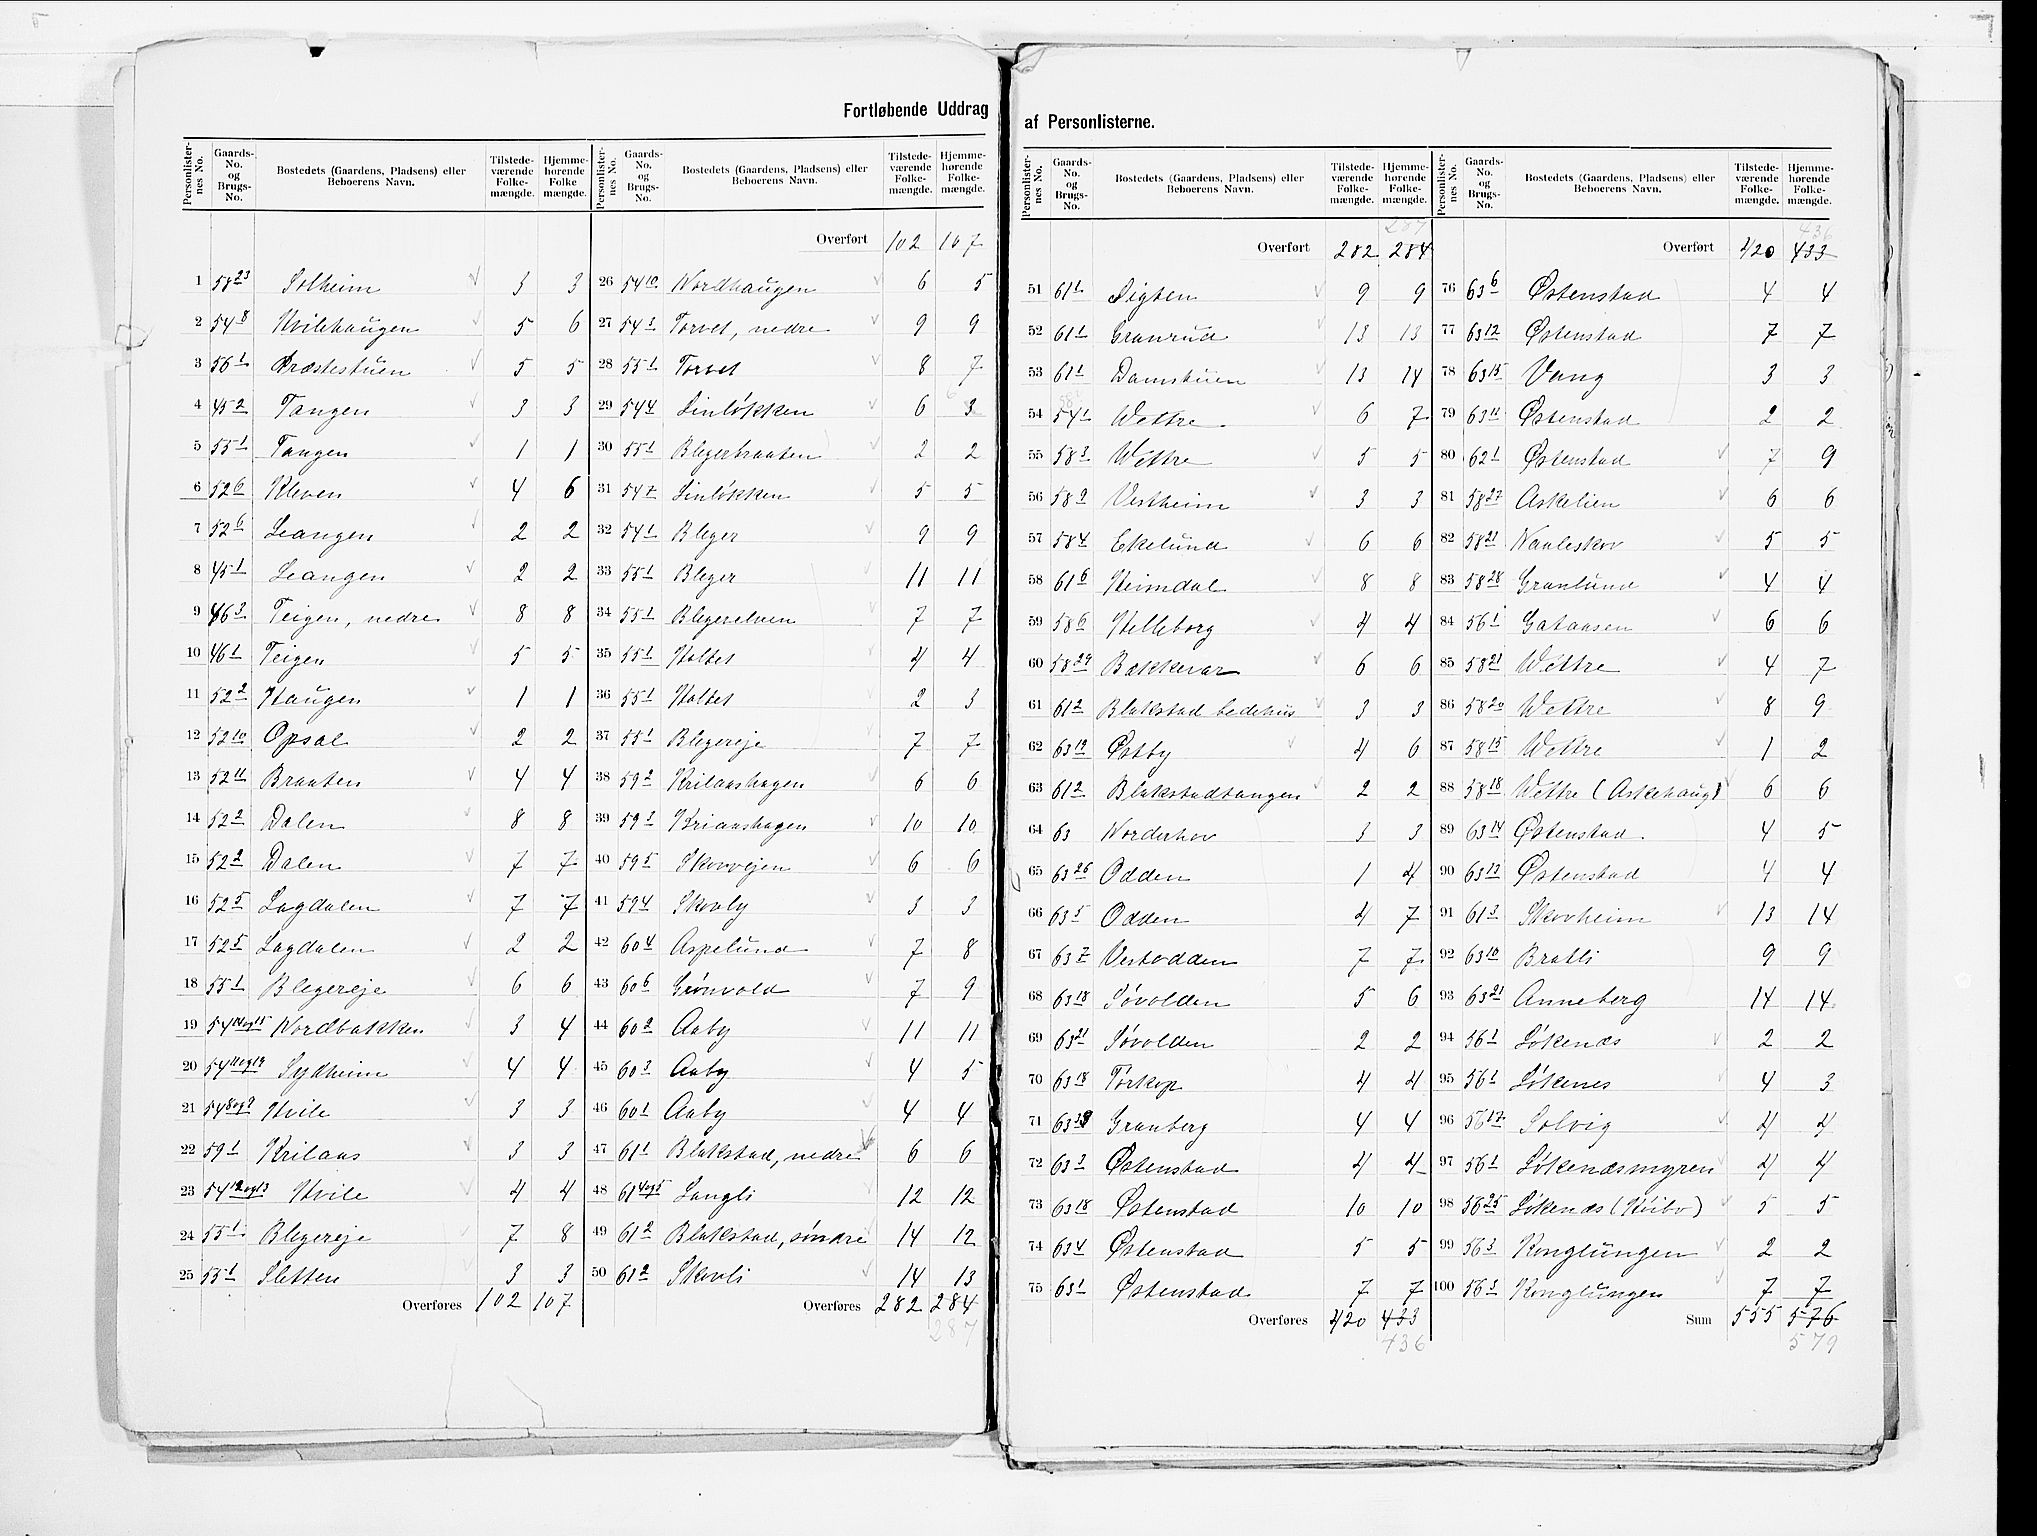 Fortløbende Uddrag af Personlisterne.
Personlister-nes No. | Gaards-No. og Brugs-No. | Bostedets (Gaardens, Pladsens) eller Beboerens Navn. | Tilstede-værende Folke-mængde. | Hjemme-hørende Folke mængde.
1 58 23 Solheim 3 3
2 54 8 Hvilehaugen 5 6
3 56 1 Præstestuen 5 5
4 45 2 Tangen 3 3
5 55 1 Tangen 1 1
6 52 6 Kleven 4 6
7 52 6 Leangen 2 2
8 45 1 Leangen 2 2
9 46 3 Teigen, nedre 8 8
10 46 1 Teigen 5 5
11 52 2 Haugen 1 1
12 52 10 Opsal 2 2
13 52 11 Braaten 4 4
14 52 2 Dalen 8 8
15 52 2 Dalen 7 7
16 52 5 Lagdalen 7 7
17 52 5 Lagdalen 2 2
18 55 1 Blegereje 6 6
19 54 14og15 Nordbakken 3 4
20 54 11og19 Sydheim 4 4
21 54 8og9 Hvile 3 3
22 59 1 Krilaas 3 3
23 54 12og13 Hvile 4 4
24 55 1 Blegereje 7 8
25 55 1 Sletten 3 3
Overføres 102 107
Personlister-nes No. | Gaards-No. og Brugs-No. | Bostedets (Gaardens, Pladsens) eller Beboerens Navn. | Tilstede-værende Folke-mængde. | Hjemme-hørende Folke-mængde.
Overført 102 107
26 54 10 Nordhaugen 6 5
27 54 1 Torvet, nedre 9 9
28 55 1 Torvet 8 7
29 54 4 Linløkken 6 3 6
30 55 1 Blegerbraaten 2 2
31 54 7 Linløkken 5 5
32 54 1 Bleger 9 9
33 55 1 Bleger 11 11
34 55 1 Blegerelven 7 7
35 55 1 Holtet 4 4
36 55 1 Holtet 2 3
37 55 1 Blegereje 7 7
38 59 2 Krilaashagen 6 6
39 59 1 Kriaashagen 10 10
40 59 5 Skovvejen 6 6
41 59 4 Skovly 3 3
42 60 4 Aspelund 7 8
43 60 6 Grønvold 7 9
44 60 2 Aaby 11 11
45 60 3 Aaby 4 5
46 60 1 Aaby 4 4
47 61 1 Blakstad, nedre 6 6
48 61 4og5 Langli 12 12
49 61 2 Blakstad, søndre 14 12
50 61 2 Skovli 14 13
Overføres 282 284
287
Personlister-nes No. | Gaards-No. og Brugs-No. | Bostedets (Gaardens, Pladsens) eller Beboerens Navn. | Tilstede-værende Folke-mængde. | Hjemme-hørende Folke-mængde.
287
Overført 282 284
51 61 1 Sigten 9 9
52 61 1 Granrud 13 13
53 61 1 Damstuen 13 14
54 54 1 Wettre 6 7
55 58 3 Wettre 5 5
56 58 9 Vestheim 3 3
57 58 4 Ekelund 6 6
58 61 6 Heimdal 8 8
59 58 6 Helleborg 4 4
60 58 29 Bakkevar 6 6
61 61 2 Blakstad bedehus 3 3
62 63 19 Østby 4 6
63 61 2 Blakstadtangen 2 2
64 63 Norderhov 3 3
65 63 26 Odden 1 4
66 63 5 Odden 4 7
67 63 7 Vestodden 7 7
68 63 18 Søvolden 5 6
69 63 21 Søvolden 2 2
70 63 18 Tørkop 4 4
71 63 Granberg 4 4
72 63 3 Østenstad 4 4
73 63 18 Østenstad 10 10
74 63 4 Østenstad 5 5
75 63 1 Østenstad 7 7
Overføres 420 433
436
Personlister-nes No. | Gaards-No. og Brugs-No. | Bostedets (Gaardens, Pladsens) eller Beboerens Navn. | Tilstede-værende Folke-mængde. | Hjemme-hørende Folke-mængde.
436
Overført 420 433
76 63 6 Østenstad 4 4
77 63 12 Østenstad 7 7
78 63 15 Vang 3 3
79 63 11 Østenstad 2 2
80 62 1 Østenstad 7 9
81 58 27 Askelien 6 6
82 58 21 Naaleskov 5 5
83 58 28 Granlund 4 4
84 56 1 Gataasen 6 6
85 58 21 Wettre 4 7
86 58 20 Wettre 8 9
87 58 15 Wettre 1 2
88 58 18 Wettre (Askehaug) 6 6
89 63 14 Østenstad 4 5
90 63 13 Østenstad 4 4
91 61 3 Skovheim 13 14
92 63 10 Bratli 9 9
93 63 21 Anneberg 14 14
94 56 1 Løkenæs 2 2
95 56 1 Løkenes 4 3
96 56 17 Solvig 4 4
97 56 1 Løkenæsmyren 4 4
98 56 25 Løkenæs (Kvibo) 5 5
99 56 3 Konglungen 2 2
100 56 3 Konglungen 7 7
Sum 555 576
579